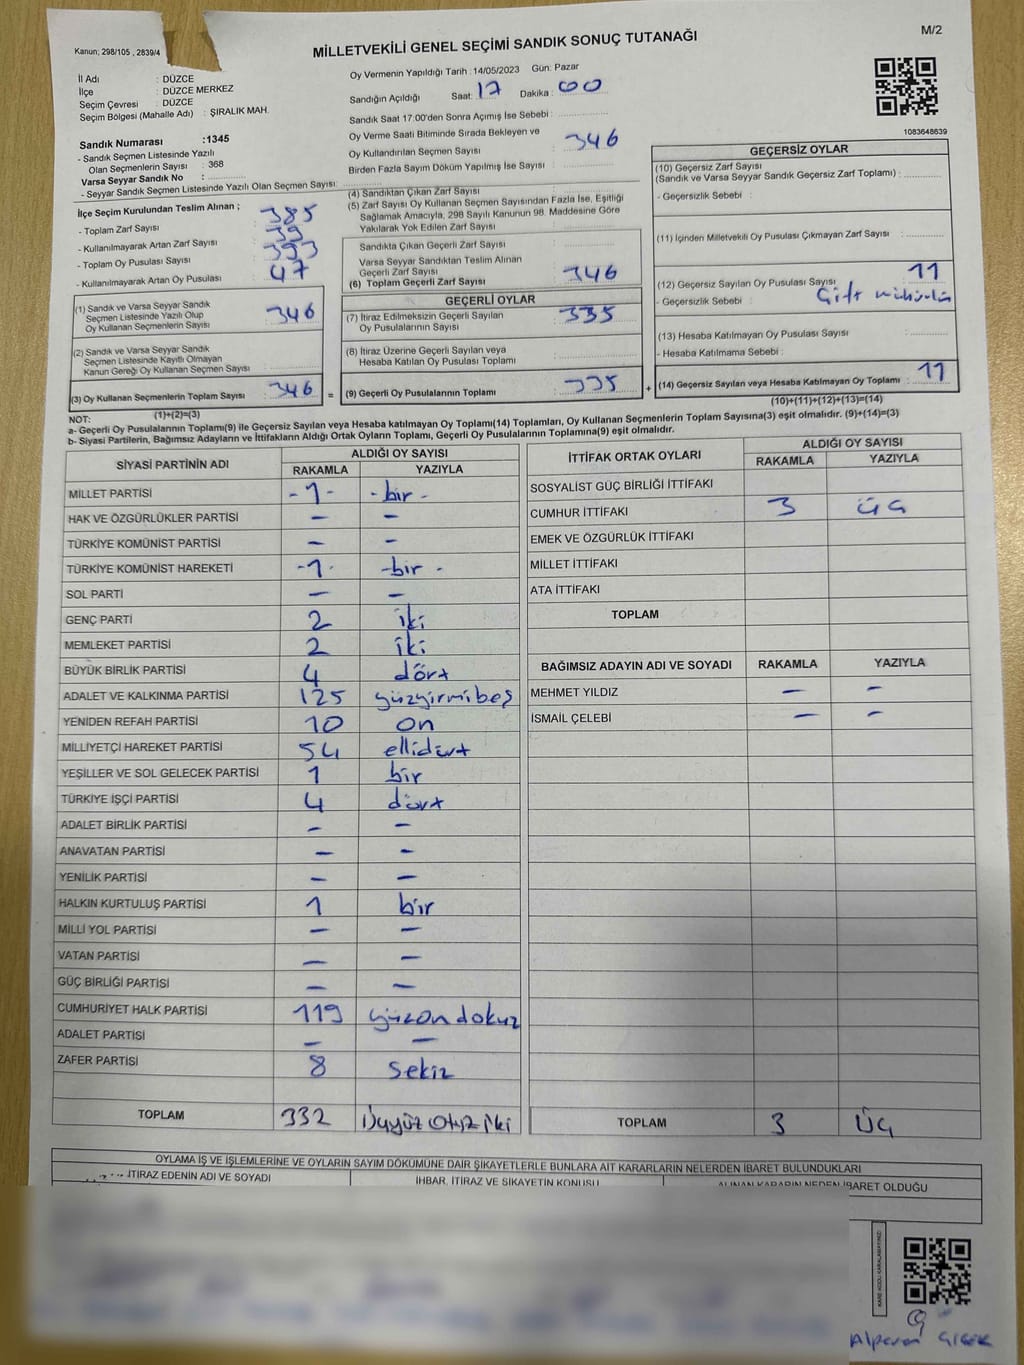 Kanun; 298/105 , 2839/4
MİLLETVEKİLİ GENEL SEÇİMİ SANDIK SONUÇ TUTANAĞI
M/2
İl Adı : DÜZCE
İlçe : DÜZCE MERKEZ
Seçim Çevresi : DÜZCE
Seçim Bölgesi (Mahalle Adı) : ŞIRALIK MAH.
Oy Vermenin Yapıldığı Tarih : 14/05/2023 Gün: Pazar
Sandığın Açıldığı Saat: 17 Dakika : 00
Sandık Saat 17:00'den Sonra Açımış İse Sebebi :
Oy Verme Saati Bitiminde Sırada Bekleyen ve
Oy Kullandırılan Seçmen Sayısı : 346
Birden Fazla Sayım Döküm Yapılmış İse Sayısı
1083648639
Sandık Numarası :1345
- Sandık Seçmen Listesinde Yazılı
Olan Seçmenlerin Sayısı : 368
Varsa Seyyar Sandık No :
- Seyyar Sandık Seçmen Listesinde Yazılı Olan Seçmen Sayısı:
İlçe Seçim Kurulundan Teslim Alınan ;
- Toplam Zarf Sayısı : 385
- Kullanılmayarak Artan Zarf Sayısı : 39
- Toplam Oy Pusulası Sayısı : 393
- Kullanılmayarak Artan Oy Pusulası : 47
(1) Sandık ve Varsa Seyyar Sandık
Seçmen Listesinde Yazılı Olup
Oy Kullanan Seçmenlerin Sayısı : 346
(2) Sandık ve Varsa Seyyar Sandık
Seçmen Listesinde Kayıtlı Olmayan
Kanun Gereği Oy Kullanan Seçmen Sayısı :
(3) Oy Kullanan Seçmenlerin Toplam Sayısı : 346
(1)+(2)=(3)
(4) Sandıktan Çıkan Zarf Sayısı
(5) Zarf Sayısı Oy Kullanan Seçmen Sayısından Fazla İse, Eşitliği
Sağlamak Amacıyla, 298 Sayılı Kanunun 98. Maddesine Göre
Yakılarak Yok Edilen Zarf Sayısı
Sandıkta Çıkan Geçerli Zarf Sayısı
Varsa Seyyar Sandıktan Teslim Alınan
Geçerli Zarf Sayısı
(6) Toplam Geçerli Zarf Sayısı : 346
GEÇERLİ OYLAR
(7) İtiraz Edilmeksizin Geçerli Sayılan
Oy Pusulalarının Sayısı : 335
(8) İtiraz Üzerine Geçerli Sayılan veya
Hesaba Katılan Oy Pusulası Toplamı
= (9) Geçerli Oy Pusulalarının Toplamı : 335
GEÇERSİZ OYLAR
(10) Geçersiz Zarf Sayısı
(Sandık ve Varsa Seyyar Sandık Geçersiz Zarf Toplamı) :
- Geçersizlik Sebebi :
(11) İçinden Milletvekili Oy Pusulası Çıkmayan Zarf Sayısı :
(12) Geçersiz Sayılan Oy Pusulası Sayısı : 11
- Geçersizlik Sebebi : Çift mühürlü
(13) Hesaba Katılmayan Oy Pusulası Sayısı
- Hesaba Katılmama Sebebi :
+ (14) Geçersiz Sayılan veya Hesaba Katılmayan Oy Toplamı : 11
(10)+(11)+(12)+(13)=(14)
NOT:
a- Geçerli Oy Pusulalarının Toplamı(9) ile Geçersiz Sayılan veya Hesaba katılmayan Oy Toplamı(14) Toplamları, Oy Kullanan Seçmenlerin Toplam Sayısına(3) eşit olmalıdır. (9)+(14)=(3)
b- Siyasi Partilerin, Bağımsız Adayların ve İttifakların Aldığı Ortak Oyların Toplamı, Geçerli Oy Pusulalarının Toplamına(9) eşit olmalıdır.
SİYASİ PARTİNİN ADI ALDIĞI OY SAYISI
RAKAMLA YAZIYLA
MİLLET PARTİSİ -1- -bir-
HAK VE ÖZGÜRLÜKLER PARTİSİ – –
TÜRKİYE KOMÜNİST PARTİSİ – –
TÜRKİYE KOMÜNİST HAREKETİ -1- -bir-
SOL PARTİ – –
GENÇ PARTİ 2 iki
MEMLEKET PARTİSİ 2 iki
BÜYÜK BİRLİK PARTİSİ 4 dört
ADALET VE KALKINMA PARTİSİ 125 yüzyirmibeş
YENİDEN REFAH PARTİSİ 10 on
MİLLİYETÇİ HAREKET PARTİSİ 54 ellidört
YEŞİLLER VE SOL GELECEK PARTİSİ 1 bir
TÜRKİYE İŞÇİ PARTİSİ 4 dört
ADALET BİRLİK PARTİSİ – –
ANAVATAN PARTİSİ – –
YENİLİK PARTİSİ – –
HALKIN KURTULUŞ PARTİSİ 1 bir
MİLLİ YOL PARTİSİ – –
VATAN PARTİSİ – –
GÜÇ BİRLİĞİ PARTİSİ – –
CUMHURİYET HALK PARTİSİ 119 yüzon dokuz
ADALET PARTİSİ – –
ZAFER PARTİSİ 8 sekiz
TOPLAM 332 Üçyüz otuz iki
İTTİFAK ORTAK OYLARI ALDIĞI OY SAYISI
RAKAMLA YAZIYLA
SOSYALİST GÜÇ BİRLİĞİ İTTİFAKI
CUMHUR İTTİFAKI 3 üç
EMEK VE ÖZGÜRLÜK İTTİFAKI
MİLLET İTTİFAKI
ATA İTTİFAKI
TOPLAM
BAĞIMSIZ ADAYIN ADI VE SOYADI RAKAMLA YAZIYLA
MEHMET YILDIZ – –
İSMAİL ÇELEBİ – –
TOPLAM 3 Üç
OYLAMA İŞ VE İŞLEMLERİNE VE OYLARIN SAYIM DÖKÜMÜNE DAİR ŞİKAYETLERLE BUNLARA AİT KARARLARIN NELERDEN İBARET BULUNDUKLARI
İTİRAZ EDENİN ADI VE SOYADI
İHBAR, İTİRAZ VE ŞİKAYETİN KONUSU
ALINAN KARARIN NEDEN İBARET OLDUĞU
KARE KODU KARALAMAYINIZ!
Alperen ÇİÇEK